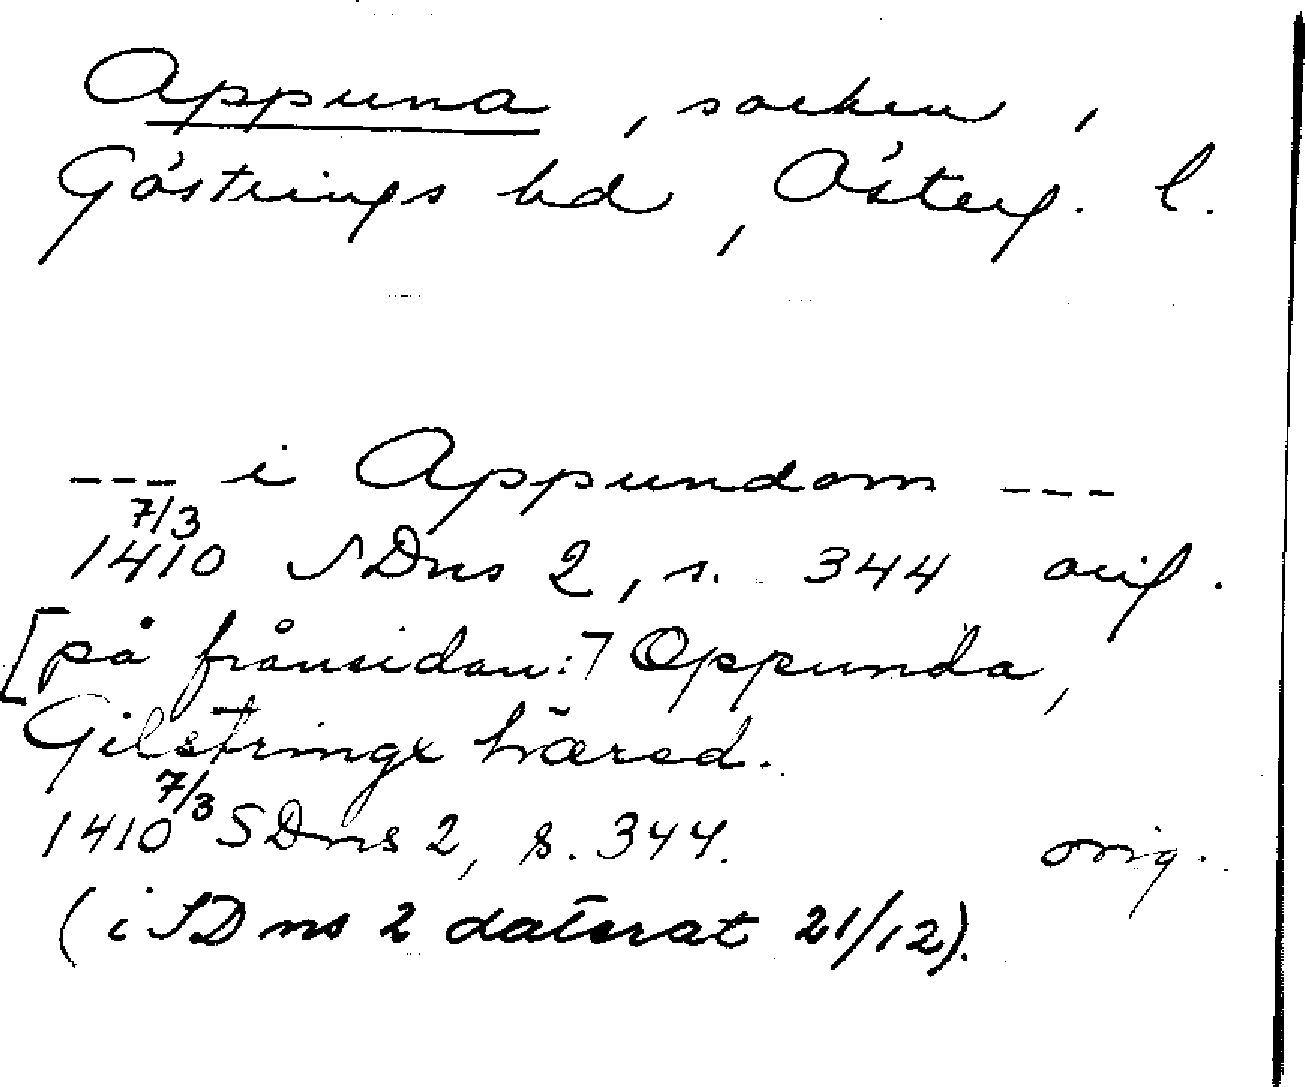 Appuna, socken,
Göstrings hd, Österg. l.
--- i Appundom ---
7/3
1410 SDns 2, s. 344 orig.
[på frånsidan:] Oppunda,
Gilstringx hæred.
7/3
1410 SDns 2, s. 344. orig.
(i SDns 2 daterat 21/12).